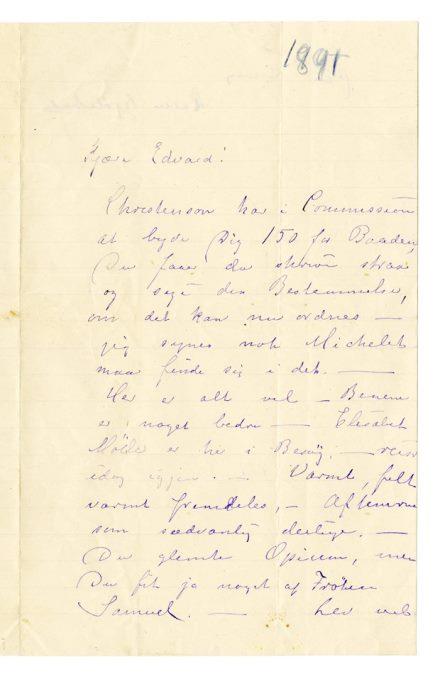 1891
Kjære Edvard!
Christenson har i Commission
at byde Dig 150 for Baaden,
Du faar da skrive straa
og sige din Bestemmelse,
om det kan nu ordnes —
jeg synes nok Michelet
maa finde sig i det. —
Her er alt vel — Benene
er noget bedre — Elisabet
Mölle er her i Besøg. — reise
idag igjen. — Varmt, fælt
varmt fremdeles, — Aftenerne
som sædvanlig deilige. —
Du glemte Opium, men
Du fik jo noget af Frøken
Samuel. — Lev vel